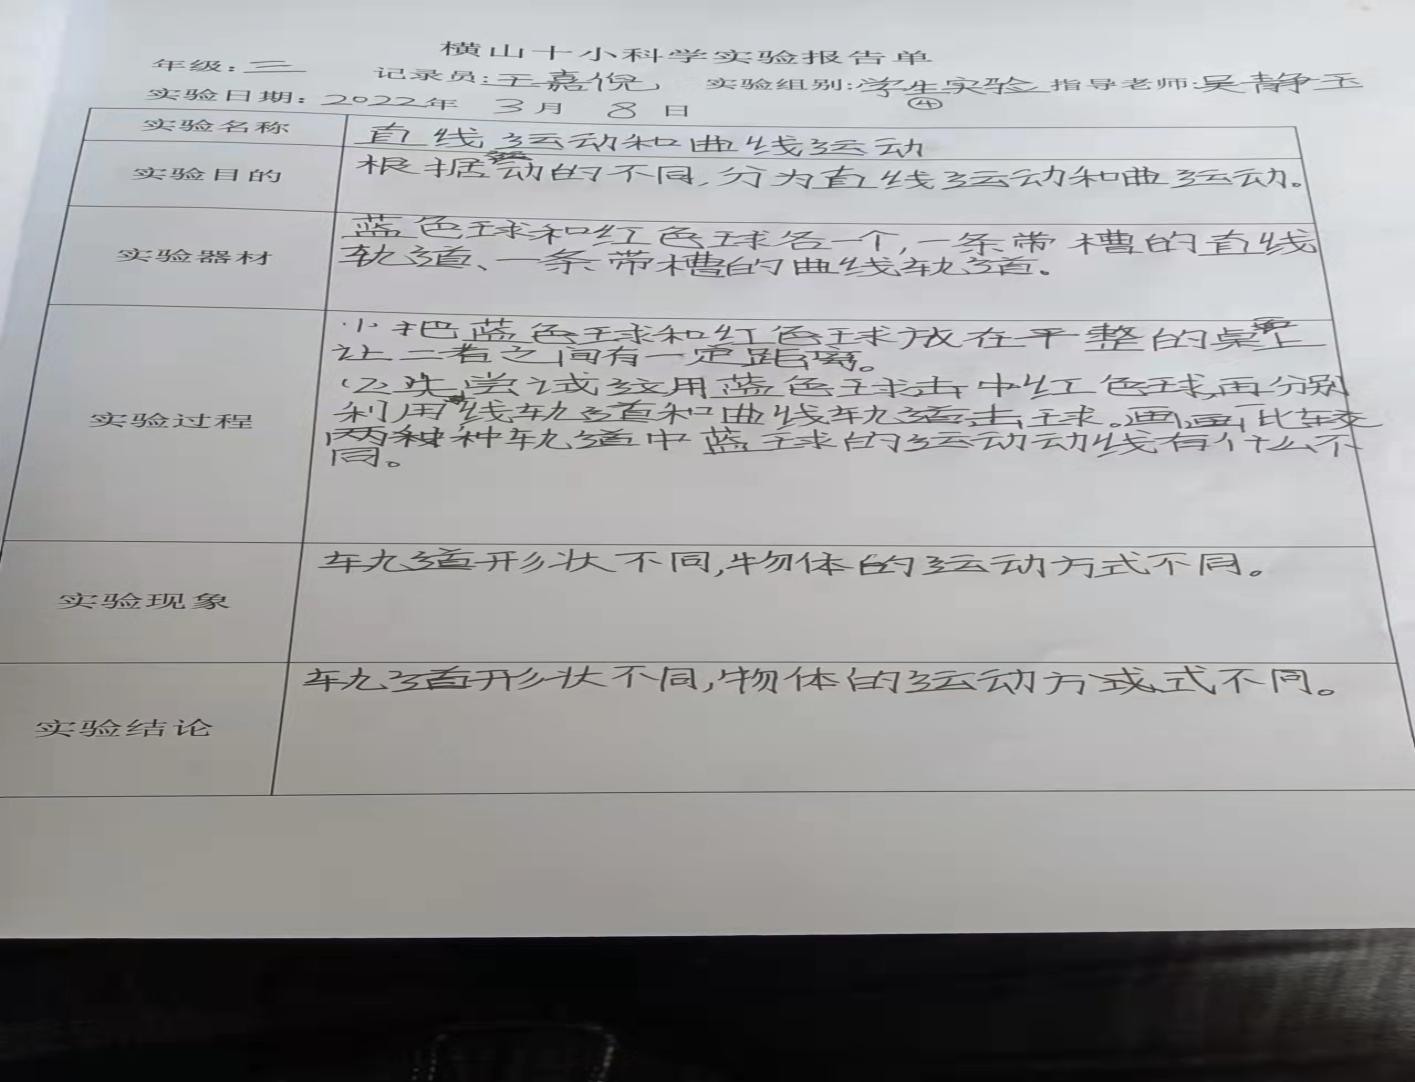 横山十小科学实验报告单
年级:三 记录员:王嘉倪 实验组别:学生实验④ 指导老师:吴静玉
实验日期:2022年 3月 8日
实验名称 直线运动和曲线运动
实验目的 根据动的不同,分为直线运动和曲运动。
实验器材 蓝色球和红色球各一个,一条带槽的直线
轨道、一条带槽的曲线轨道。
实验过程
小把蓝色球和红色球放在平整的桌上
让二者之间有一定距离。
(2先尝试纹用蓝色球击中红色球,再分别
利用线轨道和曲线轨道击球。画画,比较
两种轨道中蓝球的运动动线有什么不
同。
实验现象 轨道形状不同,物体的运动方式不同。
实验结论 轨道形状不同,物体的运动方式不同。